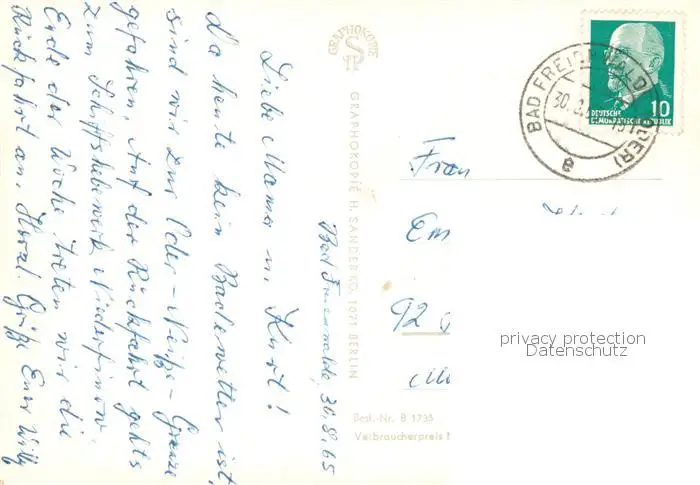 Bad Freienwalde, 30.8.65
Liebe Mama u. Kurt!
da heute kein Badewetter ist,
sind wir zur Oder-Neiße-Grenze
gefahren. Auf der Rückfahrt gehts
zum Schiffshebewerk Niederfinow.
Ende der Woche treten wir die
Rückfahrt an. Herzl. Grüße Euer Willy
GRAPHOKOPIE
GRAPHOKOPIE H. SANDER KG, 1071 BERLIN
Best.-Nr. B 1735
Verbraucherpreis
BAD FREIENWALDE (ODER)
30.8.
e
DEUTSCHE
DEMOKRATISCHE REPUBLIK
10
Frau
Em
92
privacy protection
Datenschutz